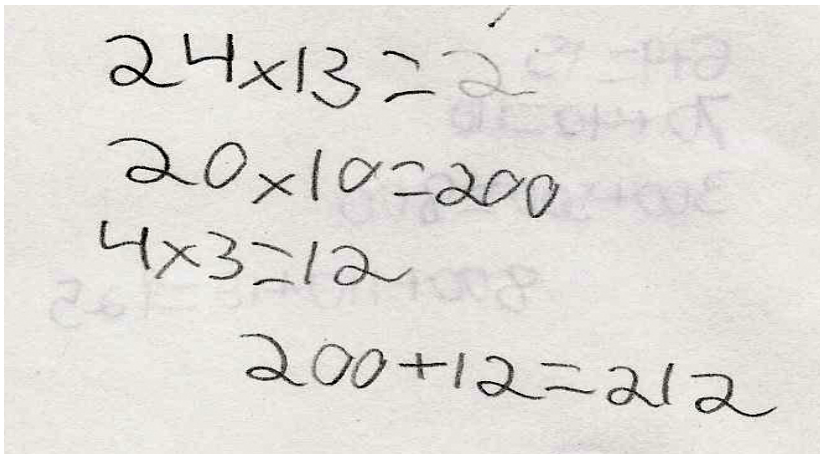 24×13=2
20×10=200
4×3=12
200+12=212